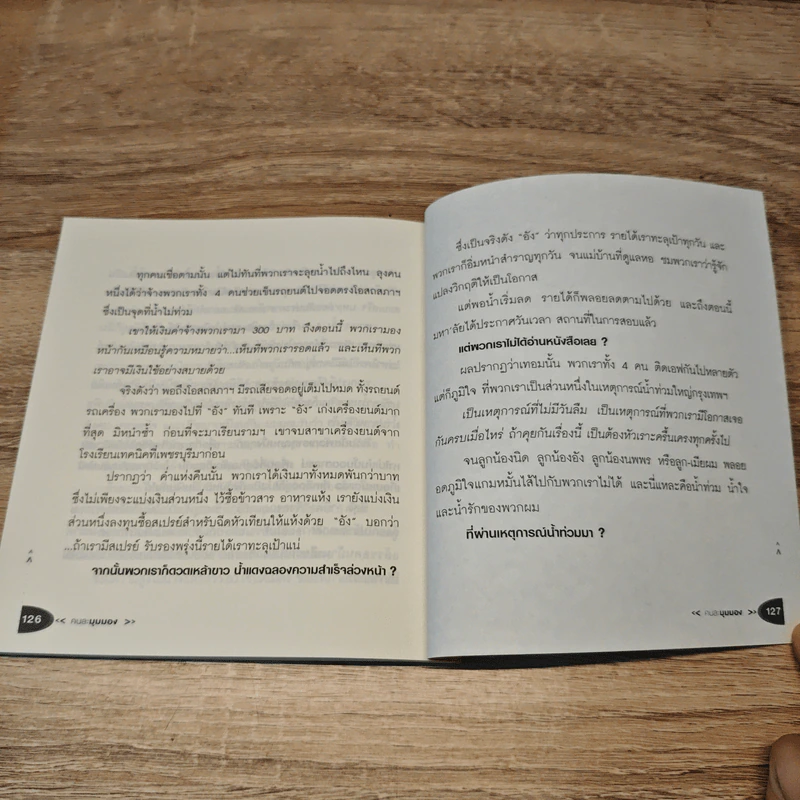 ทุกคนเชื่อตามนั้น แต่ไม่ทันที่พวกเราจะลุยน้ำไปถึงไหน ลุงคน
หนึ่งได้ว่าจ้างพวกเราทั้ง 4 คนช่วยเข็นรถยนต์ไปจอดตรงโอสถสภาฯ
ซึ่งเป็นจุดที่น้ำไม่ท่วม
เขาให้เงินค่าจ้างพวกเรามา 300 บาท ถึงตอนนี้ พวกเรามอง
หน้ากันเหมือนรู้ความหมายว่า...เห็นทีพวกเรารอดแล้ว และเห็นทีพวก
เราอาจมีเงินใช้อย่างสบายด้วย
จริงดังว่า พอถึงโอสถสภาฯ มีรถเสียจอดอยู่เต็มไปหมด ทั้งรถยนต์
รถเครื่อง พวกเรามองไปที่ "อัง" ทันที เพราะ "อัง" เก่งเครื่องยนต์มาก
ที่สุด มิหน้าซ้ำ ก่อนที่จะมาเรียนรามฯ เขาจบสาขาเครื่องยนต์จาก
โรงเรียนเทคนิคที่เพชรบุรีมาก่อน
ปรากฏว่า ค่ำแห่งคืนนั้น พวกเราได้เงินมาทั้งหมดพันกว่าบาท
ซึ่งไม่เพียงจะแบ่งเงินส่วนหนึ่ง ไว้ซื้อข้าวสาร อาหารแห้ง เรายังแบ่งเงิน
ส่วนหนึ่งลงทุนซื้อสเปรย์สำหรับฉีดหัวเทียนให้แห้งด้วย "อัง" บอกว่า
...ถ้าเรามีสเปรย์ รับรองพรุ่งนี้รายได้เราทะลุเป้าแน่
จากนั้นพวกเราก็ดวดเหล้าขาว น้ำแดงฉลองความสำเร็จล่วงหน้า ?
126 << คนละมุมมอง >>
ซึ่งเป็นจริงดัง "อัง" ว่าทุกประการ รายได้เราทะลุเป้าทุกวัน และ
พวกเราก็อิ่มหนำสำราญทุกวัน จนแม่บ้านที่ดูแลหอ ชมพวกเราว่ารู้จัก
แปลงวิกฤติให้เป็นโอกาส
แต่พอน้ำเริ่มลด รายได้ก็พลอยลดตามไปด้วย และถึงตอนนี้
มหา'ลัยได้ประกาศวันเวลา สถานที่ในการสอบแล้ว
แต่พวกเราไม่ได้อ่านหนังสือเลย ?
ผลปรากฏว่าเทอมนั้น พวกเราทั้ง 4 คน ติดเอฟกันไปหลายตัว
แต่ก็ภูมิใจ ที่พวกเราเป็นส่วนหนึ่งในเหตุการณ์น้ำท่วมใหญ่กรุงเทพฯ
เป็นเหตุการณ์ที่ไม่มีวันลืม เป็นเหตุการณ์ที่พวกเรามีโอกาสเจอ
กันครบเมื่อไหร่ ถ้าคุยกันเรื่องนี้ เป็นต้องหัวเราะครื้นเครงทุกครั้งไป
จนลูกน้องนิด ลูกน้องอัง ลูกน้องนพพร หรือลูก-เมียผม พลอย
อดภูมิใจแกมหมั่นไส้ไปกับพวกเราไม่ได้ และนี่แหละคือน้ำท่วม น้ำใจ
และน้ำรักของพวกผม
ที่ผ่านเหตุการณ์น้ำท่วมมา ?
<< คนละมุมมอง >> 127